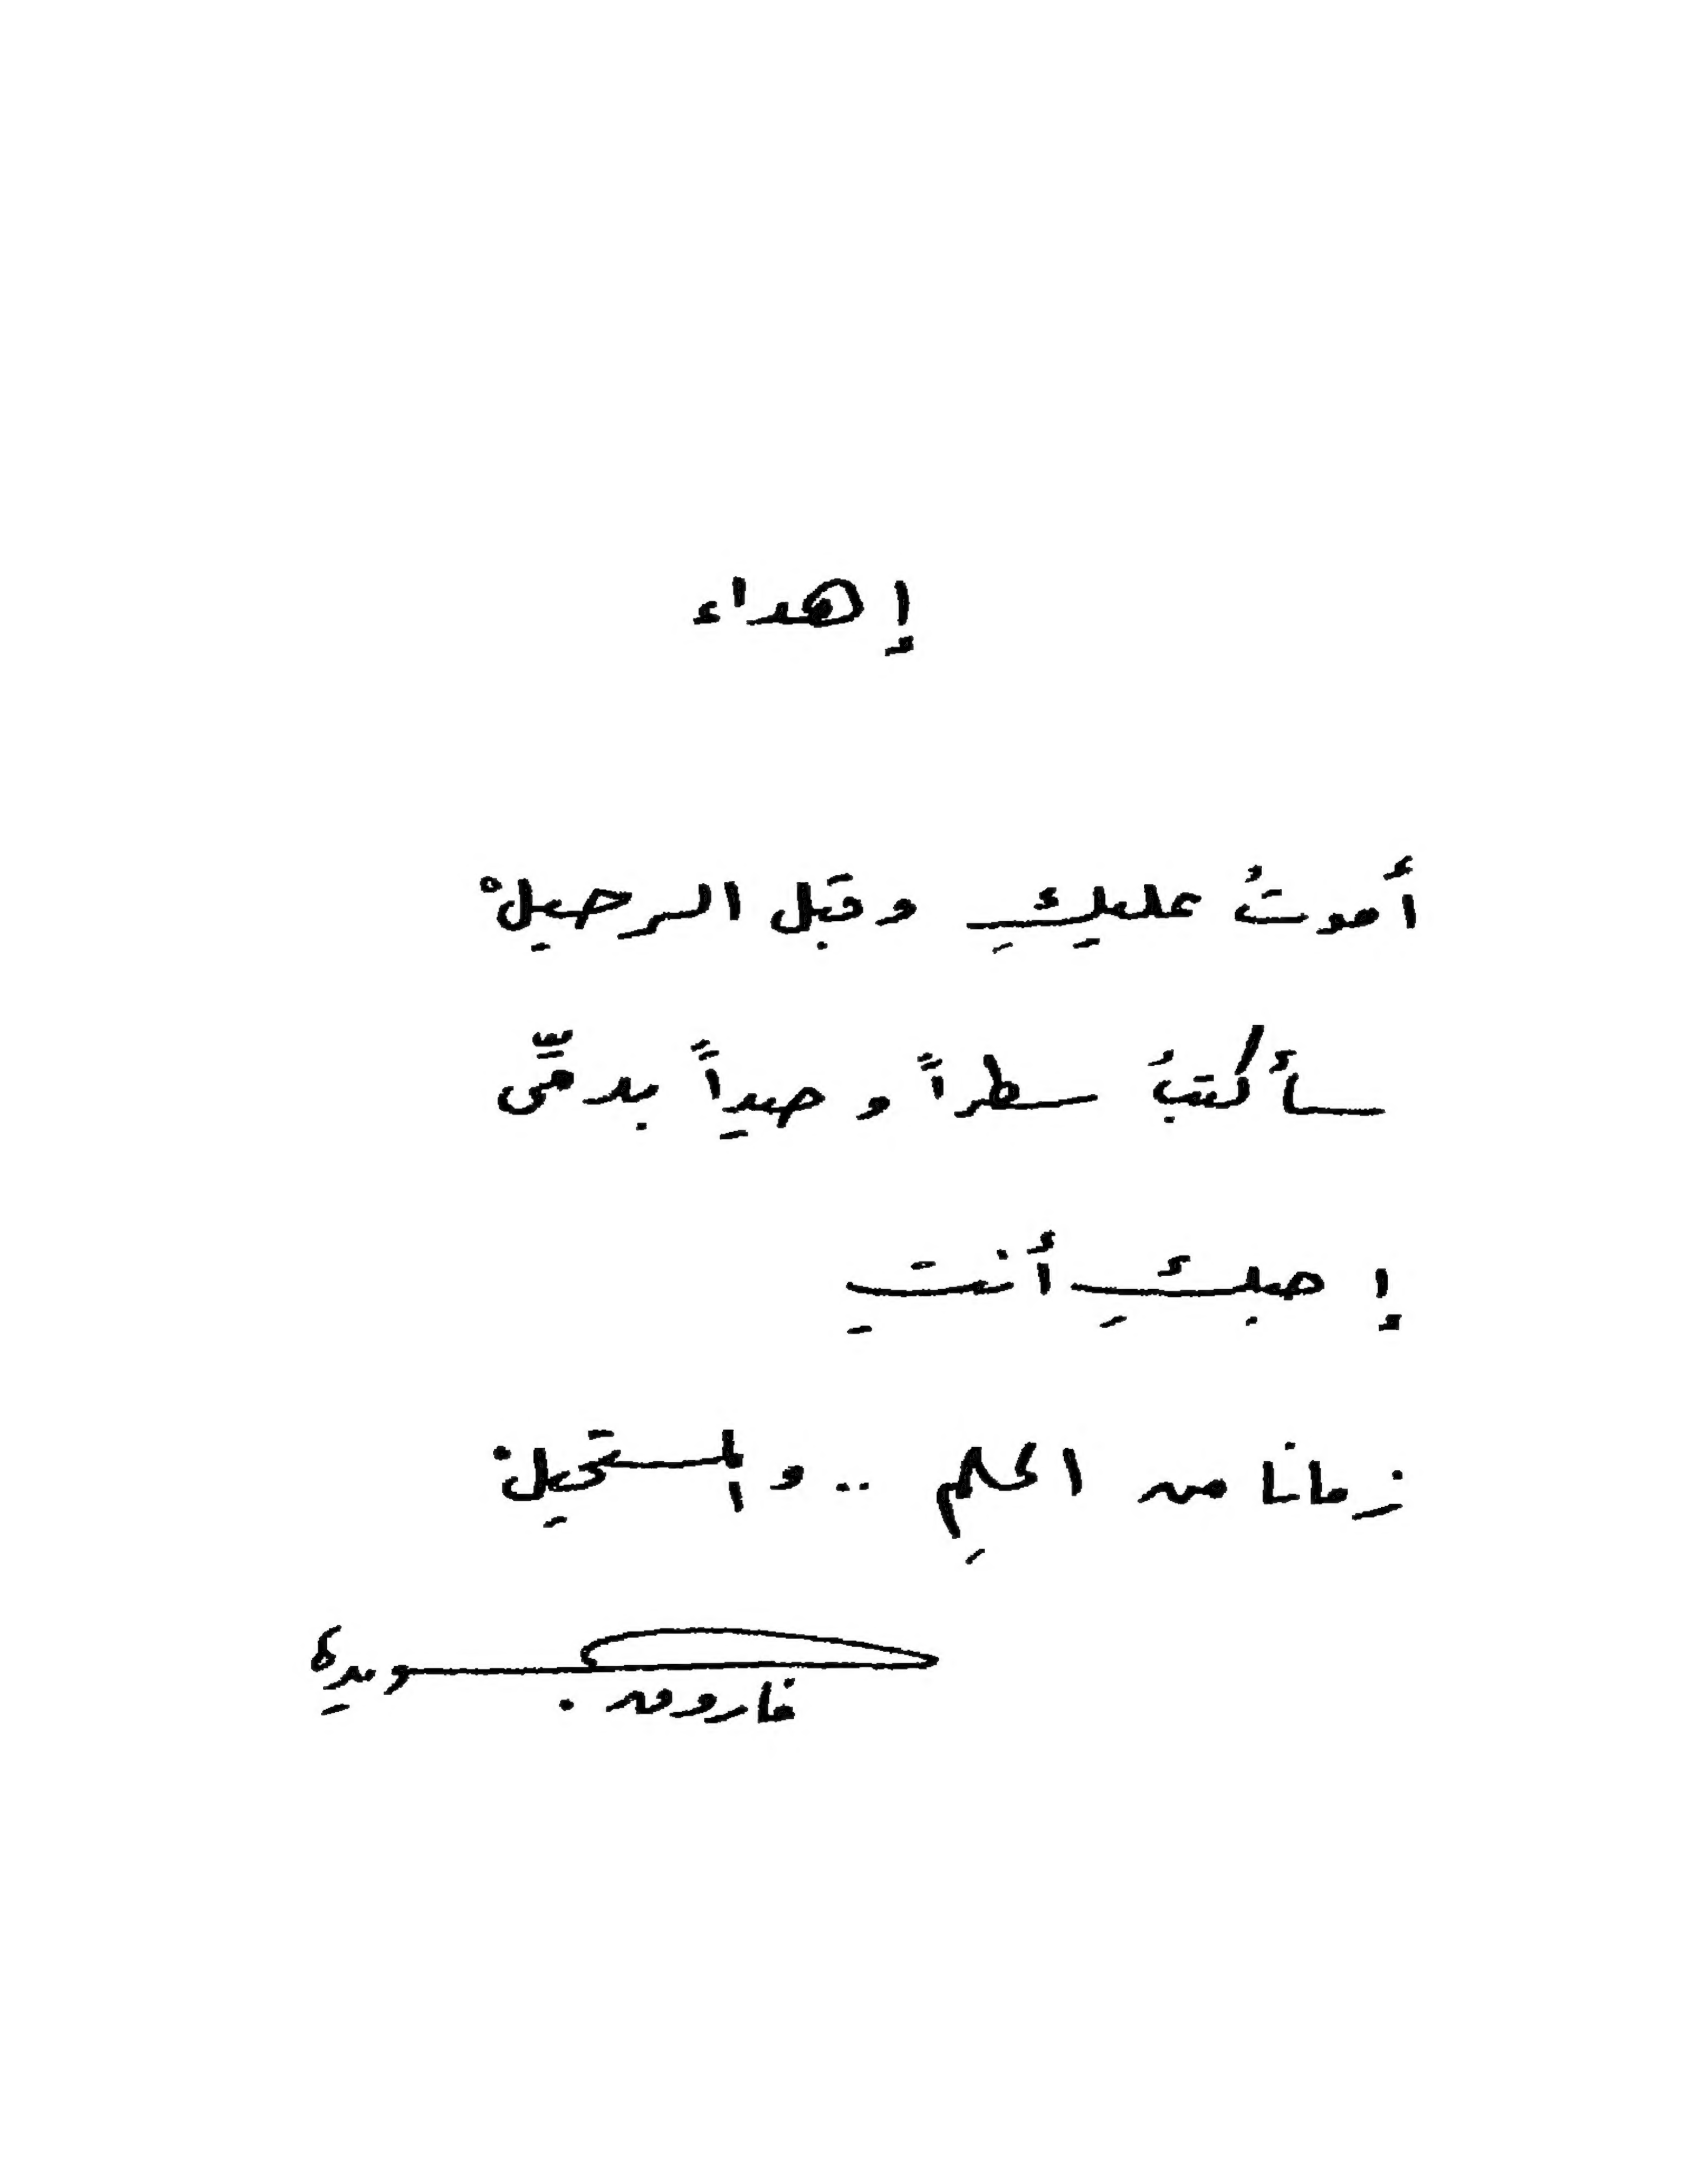 إهداء
أموتُ عليكِ وقبل الرحيلْ
سأكتبُ سطراً وحيداً بدمىّ
إحبكِ أنتِ
زمانا من الحلمِ .. والمستحيلْ
فاروق . جويدة